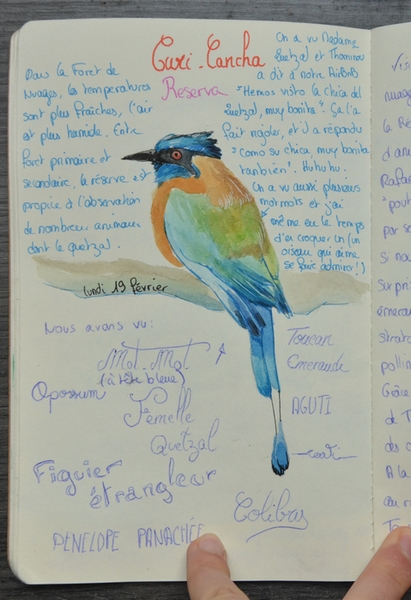 Curi-Cancha
Reserva
Dans la Forêt de
Nuages, les températures
sont plus fraîches, l'air
est plus humide. Entre
forêt primaire et
secondaire, la réserve est
propice à l'observation
de nombreux animaux
dont le quetzal.
On a vu Madame
Quetzal et Thominou
a dit à notre AirBnB
"Hemos visto la chica del
Quetzal, muy bonita". Ça l'a
fait rigoler, et il a répondu
"Como su chica, muy bonita
tanbien". Huhuhu.
On a vu aussi plusieurs
motmots et j'ai
même eu le temps
d'en croquer un (un
oiseau qui aime
se faire admirer!)
lundi 19 février
Nous avons vu:
Mot-Mot
(à tête bleue)
Opossum
Femelle
Quetzal
Figuier
étrangleur
PENELOPE PANACHÉE
Toucan
Emeraude
AGUTI
coati
Colibris